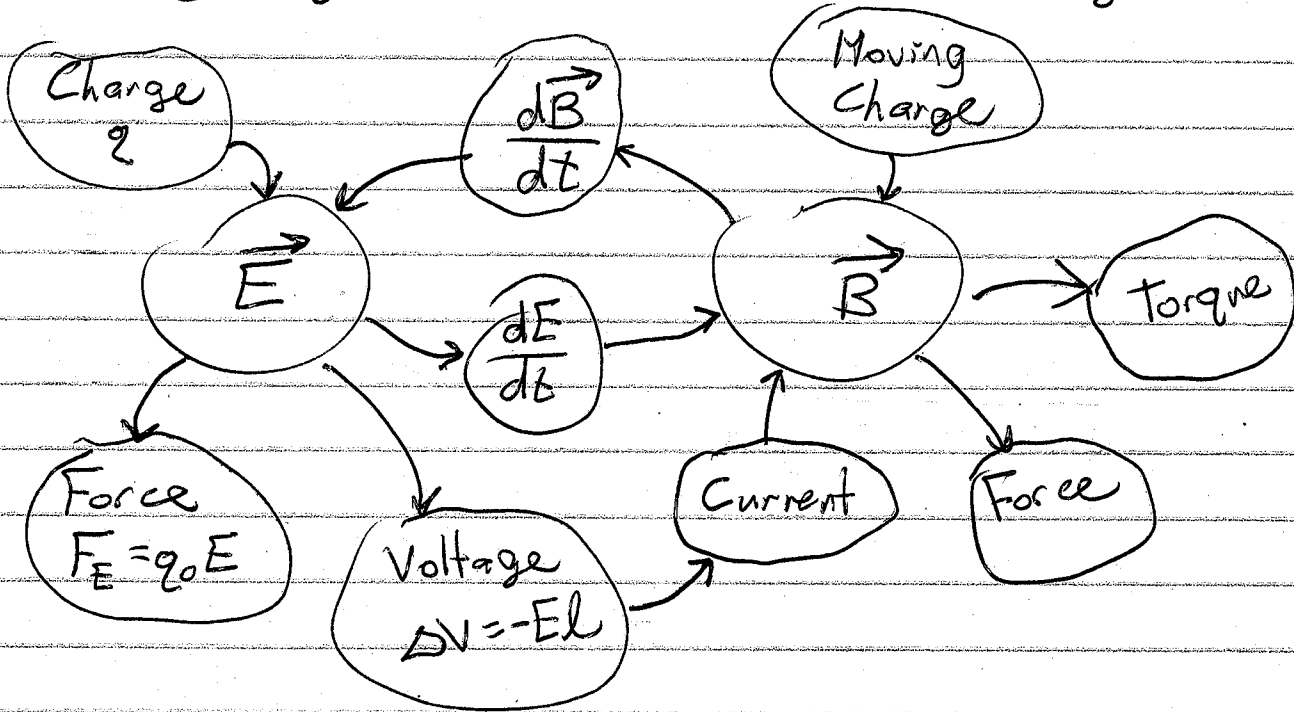 Charge
q
dB/dt
Moving
Charge
E
B
Torque
dE/dt
Force
F_E = q₀E
Voltage
ΔV = -El
Current
Force